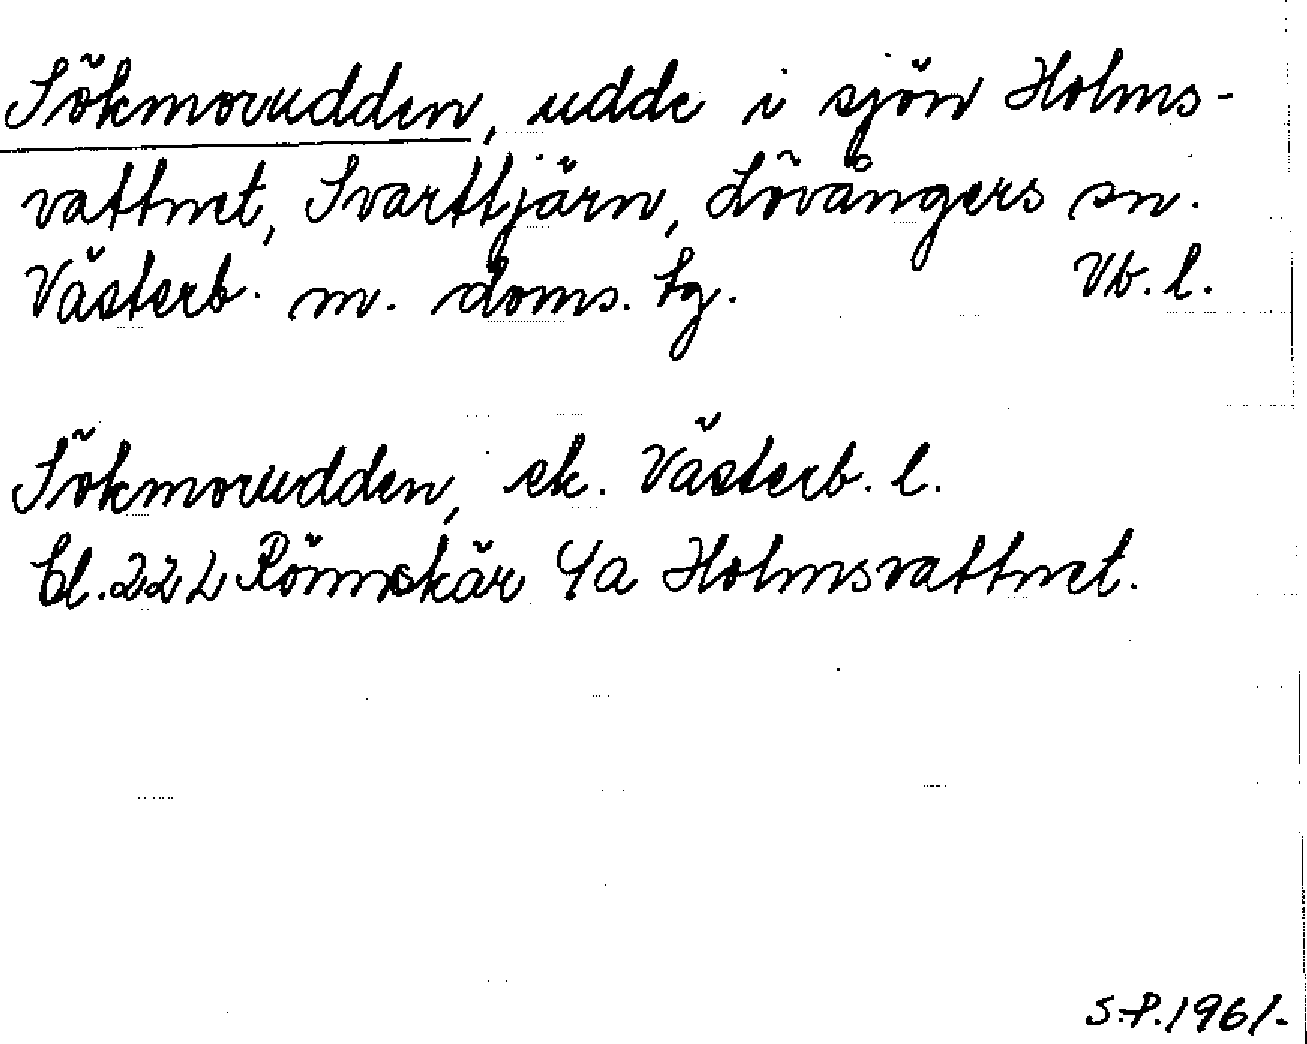 Sökmorudden, udde i sjön Holms-
vattnet, Svarttjärn, Lövångers sn.
Västerb. m. doms. tg. Vb. l.
Sökmorudden, ek. Västerb. l.
Bl. 22 L Rönnskär 4a Holmsvattnet.
S.P. 1961.